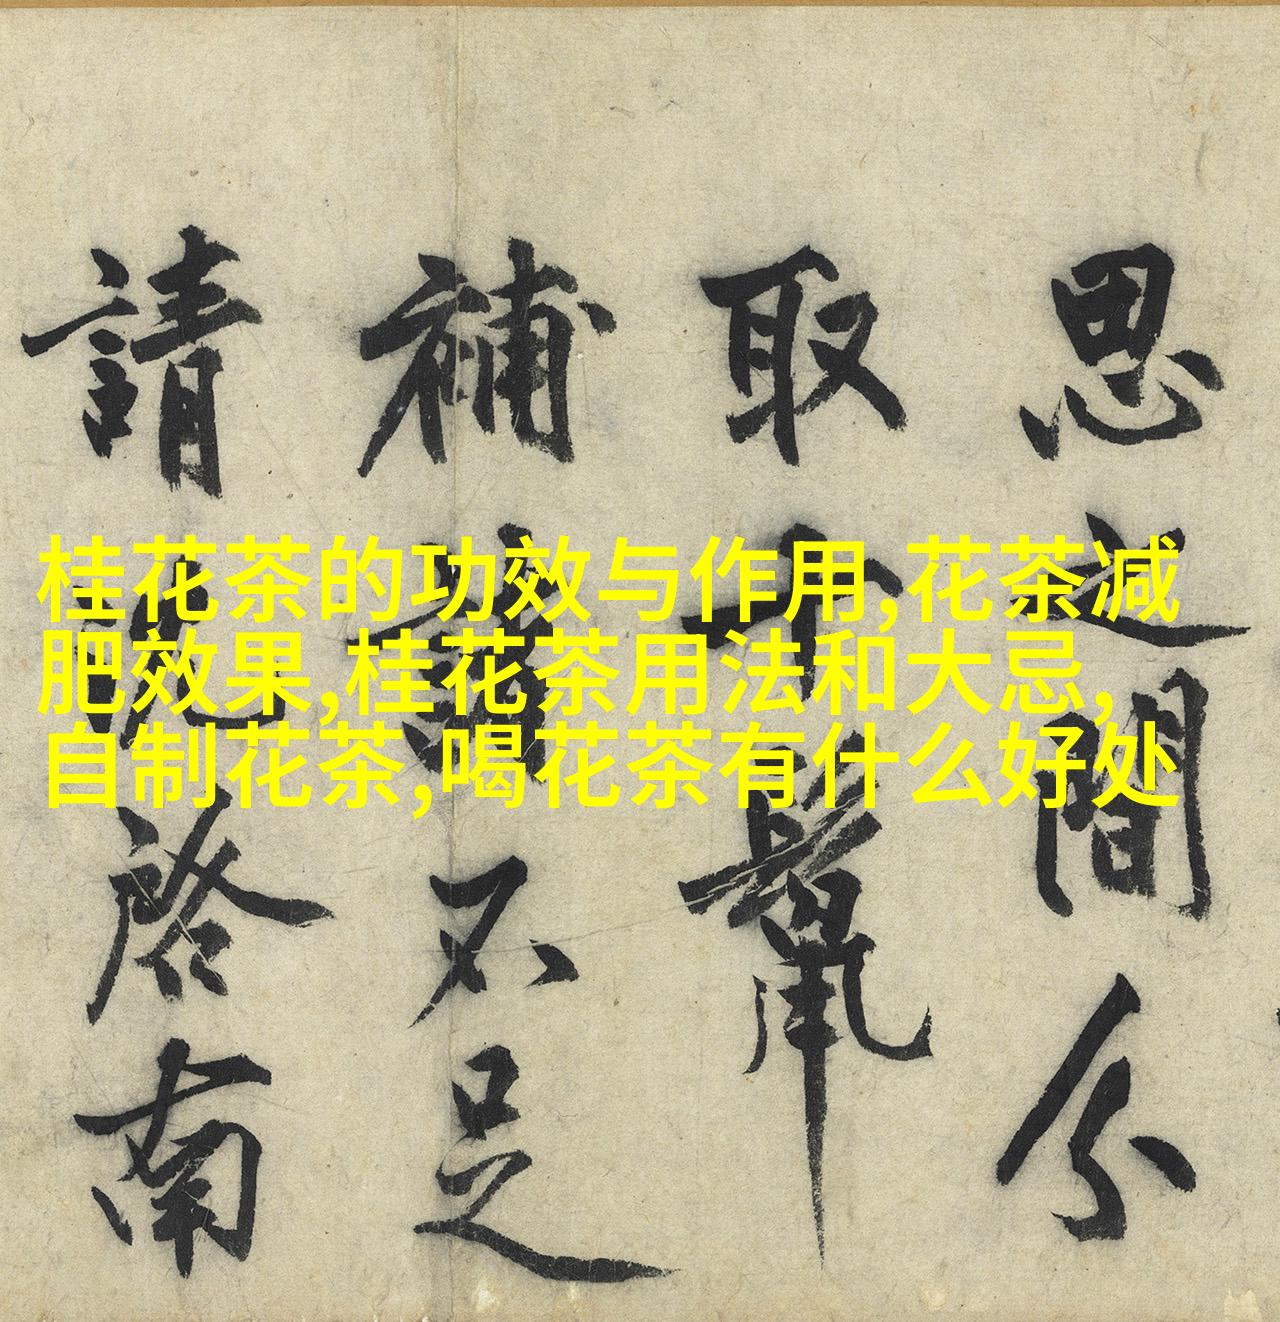 桂花茶的功效与作用,花茶减
肥效果,桂花茶用法和大忌,
自制花茶,喝花茶有什么好处
思之間分
取
補諸不足
請 啓南